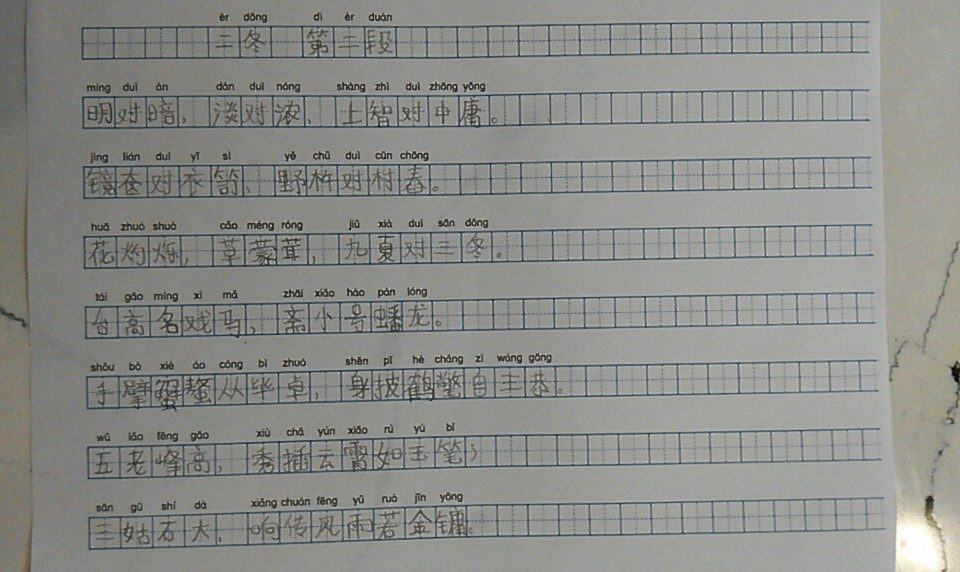 èr dōng dì èr duàn
二冬 第二段
míng duì àn dàn duì nóng shàng zhì duì zhōng yōng
明对暗，淡对浓，上智对中庸。
jìng lián duì yī sì yě chǔ duì cūn chōng
镜奁对衣笥，野杵对村舂。
huā zhuó shuò cǎo méng róng jiǔ xià duì sān dōng
花灼烁，草蒙茸，九夏对三冬。
tái gāo míng xì mǎ zhāi xiǎo hào pán lóng
台高名戏马，斋小号蟠龙。
shǒu bò xiè áo cóng bì zhuó shēn pī hè chǎng zì wáng gōng
手擘蟹螯从毕卓，身披鹤氅自王恭。
wǔ lǎo fēng gāo xiù chā yún xiāo rú yù bǐ
五老峰高，秀插云霄如玉笔；
sān gū shí dà xiǎng chuán fēng yǔ ruò jīn yōng
三姑石大，响传风雨若金镛。